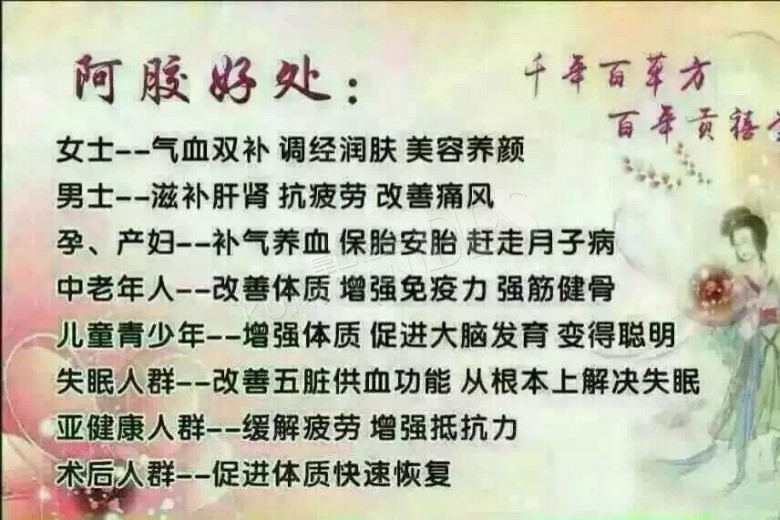 阿胶好处：
千年百草方
百年贡禧堂
女士--气血双补 调经润肤 美容养颜
男士--滋补肝肾 抗疲劳 改善痛风
孕、产妇--补气养血 保胎安胎 赶走月子病
中老年人--改善体质 增强免疫力 强筋健骨
儿童青少年--增强体质 促进大脑发育 变得聪明
失眠人群--改善五脏供血功能 从根本上解决失眠
亚健康人群--缓解疲劳 增强抵抗力
术后人群--促进体质快速恢复